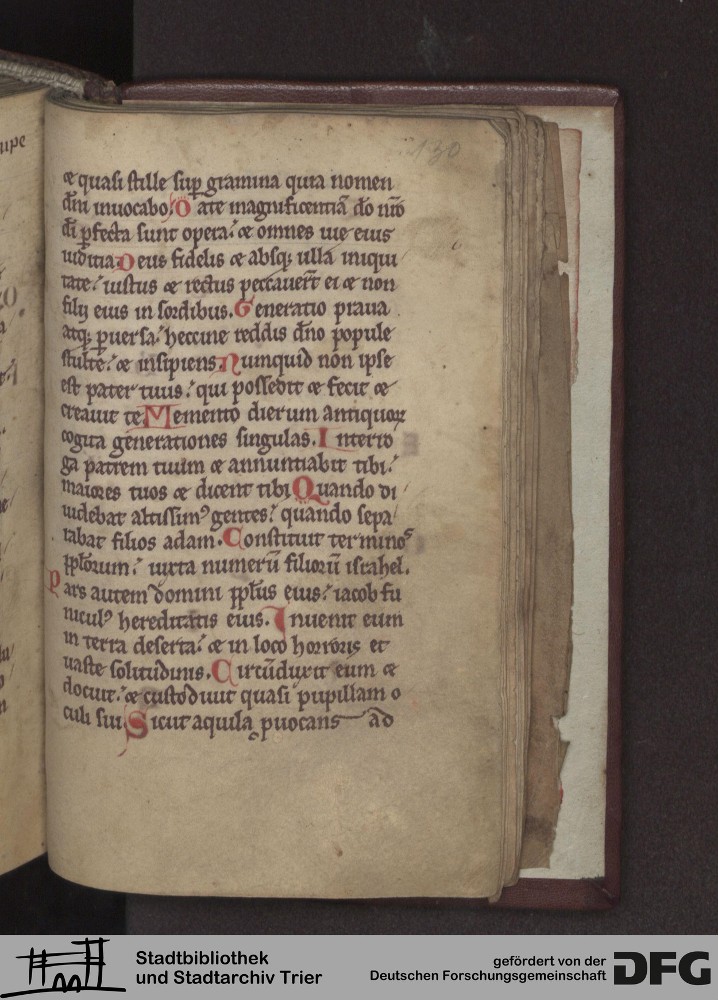 upe
130
æ quasi stille sup̱ gramina quia nomen
dn̄i inuocabo. Date magnificentiā dō nr̄o
di ꝑfecta sunt opera: æ omnes uie eius
iuditia Deus fidelis æ absqꝫ ulla iniqui
tate: iustus æ rectus peccauert̄ ei æ non
filij eius in sordibus. Generatio praua
atqꝫ ꝑuersa: heccine reddis dn̄o popule
stulte: æ insipiens. Numquid non ipse
est pater tuus: qui possedit æ fecit æ
creauit te Memento dierum antiquoꝝ
cogita generationes singulas. Interro
ga patrem tuum æ annuntiabit tibi:
maiores tuos æ dicent tibi Quando di
uidebat altissimꝰ gentes: quando sepa
rabat filios adam. Constituit terminoˢ
ppl̄orum: iuxta numerū filiorū israhel.
Pars autem domini ppl̄us eius: iacob fu
niculꝰ hereditatis eius. Inuenit eum
in terra deserta: æ in loco horroris et
uaste solitudinis. Circūduxit eum æ
docuit: æ custodiuit quasi pupillam o
culi sui Sicut aquila ꝓuocans ad
Stadtbibliothek
und Stadtarchiv Trier
gefördert von der
Deutschen Forschungsgemeinschaft
DFG